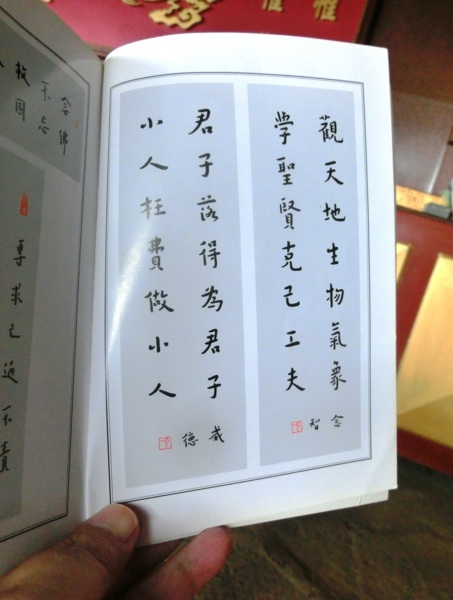 觀天地生物氣象
學聖賢克己工夫
念智
君子落得為君子
小人枉費做小人
威德
念佛
不忘
救國
專求己過不責
惟